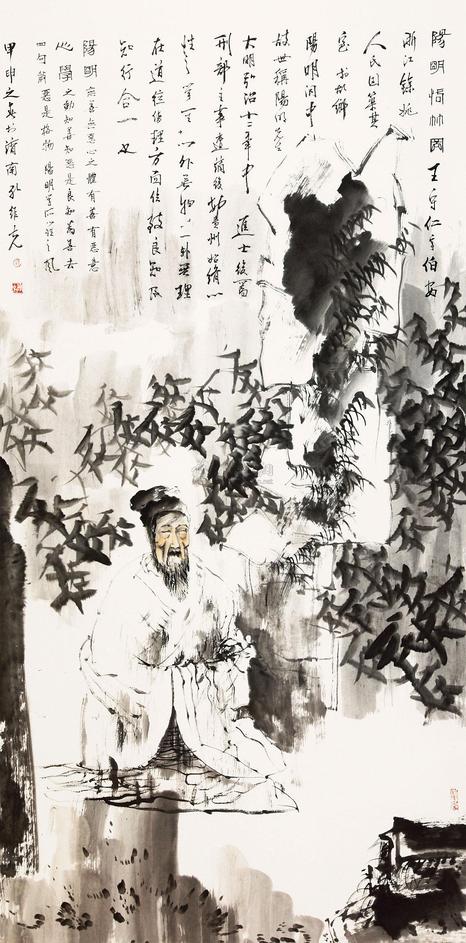 陽明悟竹圖 王守仁字伯安
浙江餘姚
人氏因築其
室於故鄉
陽明洞中
故世稱陽明先生
大明弘治十二年中進士後爲
刑部主事遭謫後於貴州始倡心
性之學
在道德倫理方面倡致良知及
知行合一也
陽明 無善無惡心之體有善有惡意
心學 之動知善知惡是良知爲善去
四句 惡是格物 陽明先 之風
甲申之 於濟南孔維克